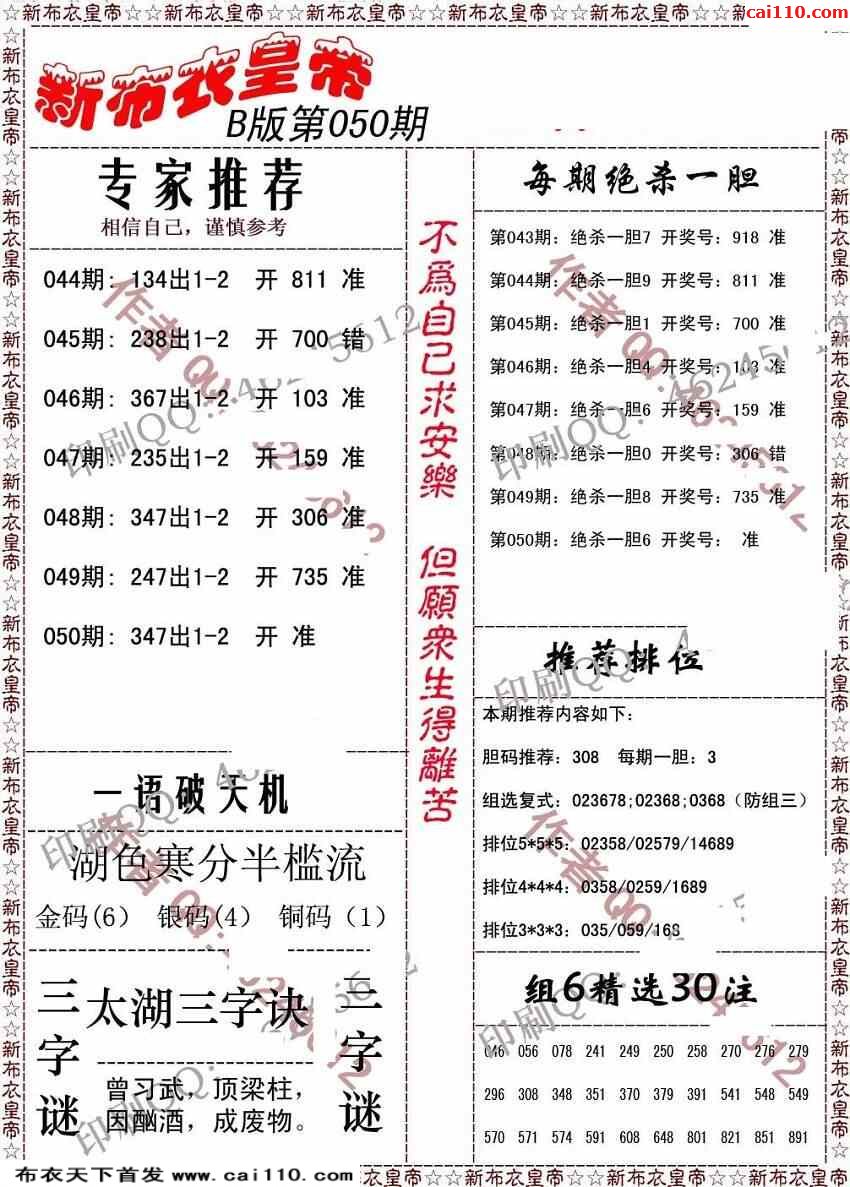 ☆☆新布衣皇帝☆☆新布衣皇帝☆☆新布衣皇帝☆☆新布衣皇帝☆☆新布衣皇帝☆☆
cai110.com
新布衣皇帝
B版第050期
专家推荐
相信自己，谨慎参考
044期：134出1-2 开 811 准
045期：238出1-2 开 700 错
046期：367出1-2 开 103 准
047期：235出1-2 开 159 准
048期：347出1-2 开 306 准
049期：247出1-2 开 735 准
050期：347出1-2 开 准
一语破天机
湖色寒分半槛流
金码(6) 银码(4) 铜码（1）
三字谜
太湖三字诀
曾习武，顶梁柱，
因酗酒，成废物。
三字谜
不爲自己求安樂 但願衆生得離苦
每期绝杀一胆
第043期：绝杀一胆7 开奖号：918 准
第044期：绝杀一胆9 开奖号：811 准
第045期：绝杀一胆1 开奖号：700 准
第046期：绝杀一胆4 开奖号：103 准
第047期：绝杀一胆6 开奖号：159 准
第048期：绝杀一胆0 开奖号：306 错
第049期：绝杀一胆8 开奖号：735 准
第050期：绝杀一胆6 开奖号： 准
推荐排位
本期推荐内容如下：
胆码推荐：308 每期一胆：3
组选复式：023678;02368;0368（防组三）
排位5*5*5：02358/02579/14689
排位4*4*4：0358/0259/1689
排位3*3*3：035/059/168
组6精选30注
046 056 078 241 249 250 258 270 276 279
296 308 348 351 370 379 391 541 548 549
570 571 574 591 608 648 801 821 851 891
布衣天下首发 www.cai110.com
衣皇帝☆☆新布衣皇帝☆☆新布衣皇帝☆☆新布衣皇帝☆☆